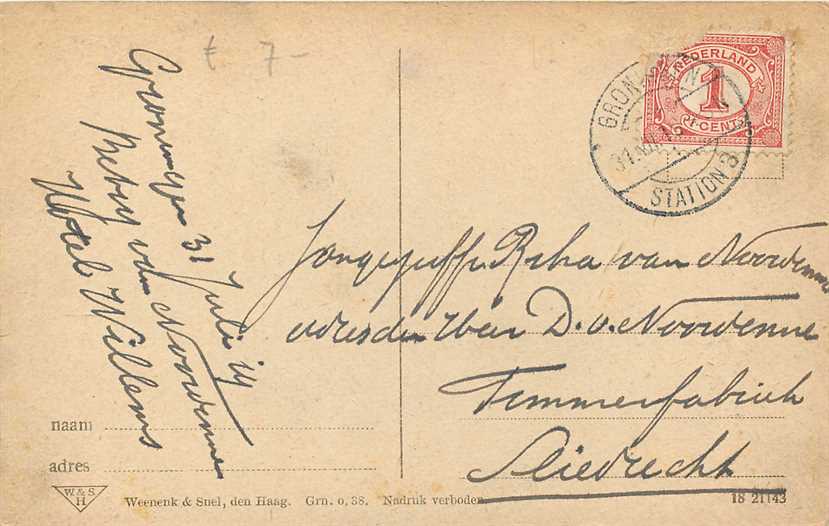 £ 7-
Groningen 31 Juli 14
Betsy van Noordenne
Hotel Willems
NEDERLAND
1
1 CENT
GRONINGEN
STATION 3
Jongejuffr. Reka van Noordenne
adres den Weer D. v. Noordenne
Timmerfabriek
Sliedrecht
naam
adres
W. & S.
H
Weenenk & Snel, den Haag. Grn. o, 38. Nadruk verboden.
18 21143